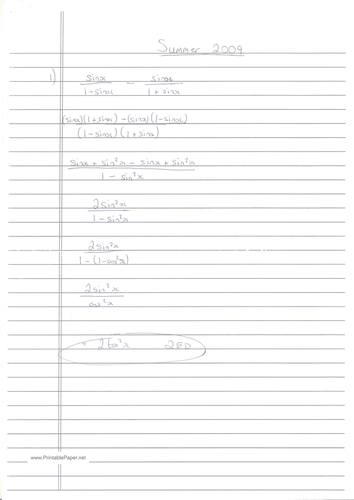 Summer 2009
1) sinx/(1-sinx) - sinx/(1+sinx)
(sinx)(1+sinx) - (sinx)(1-sinx)/(1-sinx)(1+sinx)
sinx + sin²x - sinx + sin²x/1 - sin²x
2sin²x/1-sin²x
2sin²x/1-(1-cos²x)
2sin²x/cos²x
= 2tan²x QED
www.PrintablePaper.net